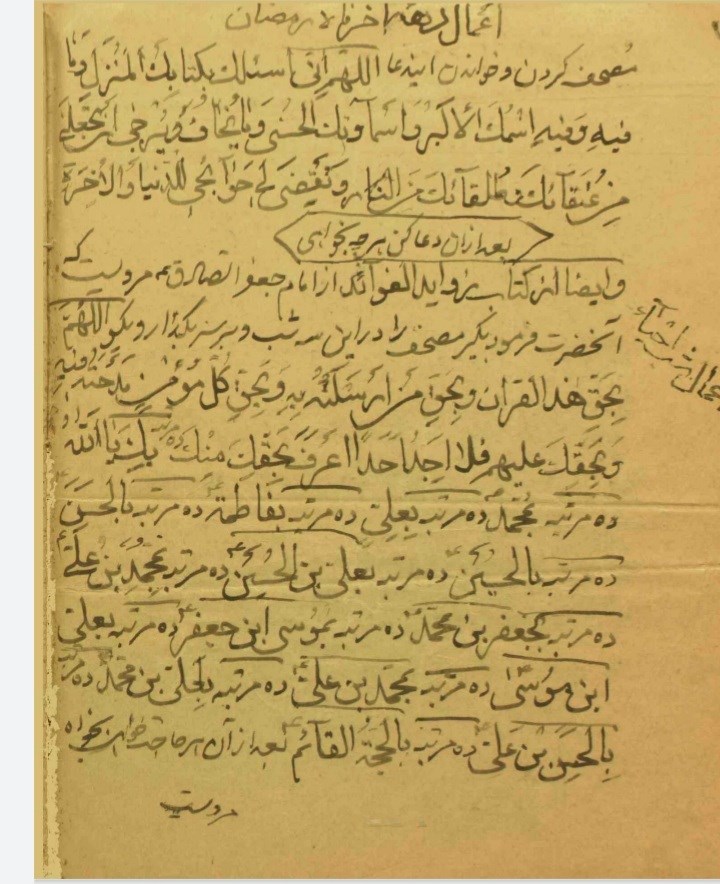 اعمال دهه اخر ماه رمضان
مصحف کردن و خواندن ایندعا اللهم انی اسئلک بکتابک المنزل وما
فیه وفیه اسمک الاکبر واسماؤک الحسنی وما یخاف ویرجی ان تجعلنی
من عتقائک وطلقائک من النار وتقضی لی حوائجی للدنیا والآخرة
بعد ازان دعا کن هرچه خواهی
وایضا از کتاب زواید الفوائد از امام جعفر الصادق ع مرویست که
آنحضرت فرمود بگیر مصحف را در این سه شب وبر سر بگذار وبگو اللهم
بحق هذا القران وبحق من ارسلته به وبحق کل مؤمن مدحته فیه
وبحقک علیهم فلا احد احدا اعرف بحقک منک ده مرتبه بک یا الله
ده مرتبه بمحمد ده مرتبه بعلی ده مرتبه بفاطمة ده مرتبه بالحسن
ده مرتبه بالحسین ده مرتبه بعلی بن الحسین ده مرتبه بمحمد بن علی
ده مرتبه بجعفر بن محمد ده مرتبه بموسی ابن جعفر ده مرتبه بعلی
ابن موسی ده مرتبه بمحمد بن علی ده مرتبه بعلی بن محمد ده مرتبه
بالحسن بن علی ده مرتبه بالحجة القائم بعد ازآن هر حاجت خواهی بخواه
مرویست
اعمال شب احیاء